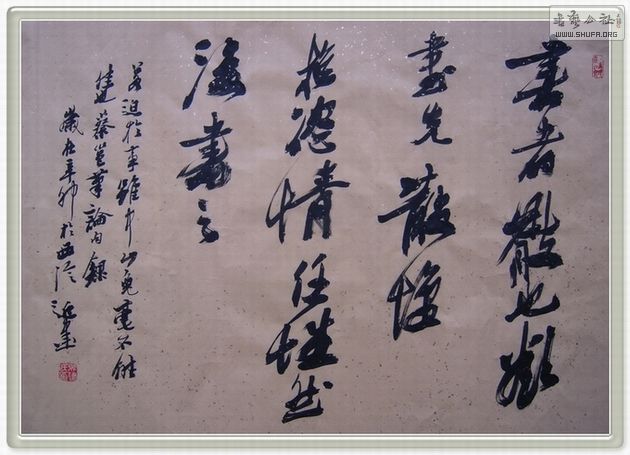 書者散也欲
書先散懷
抱恣情任性然
後書之
若迫於事雖中山兔毫不能
佳也蔡邕筆論句錄
歲在辛卯於西泠
书艺公社
WWW.SHUFA.ORG